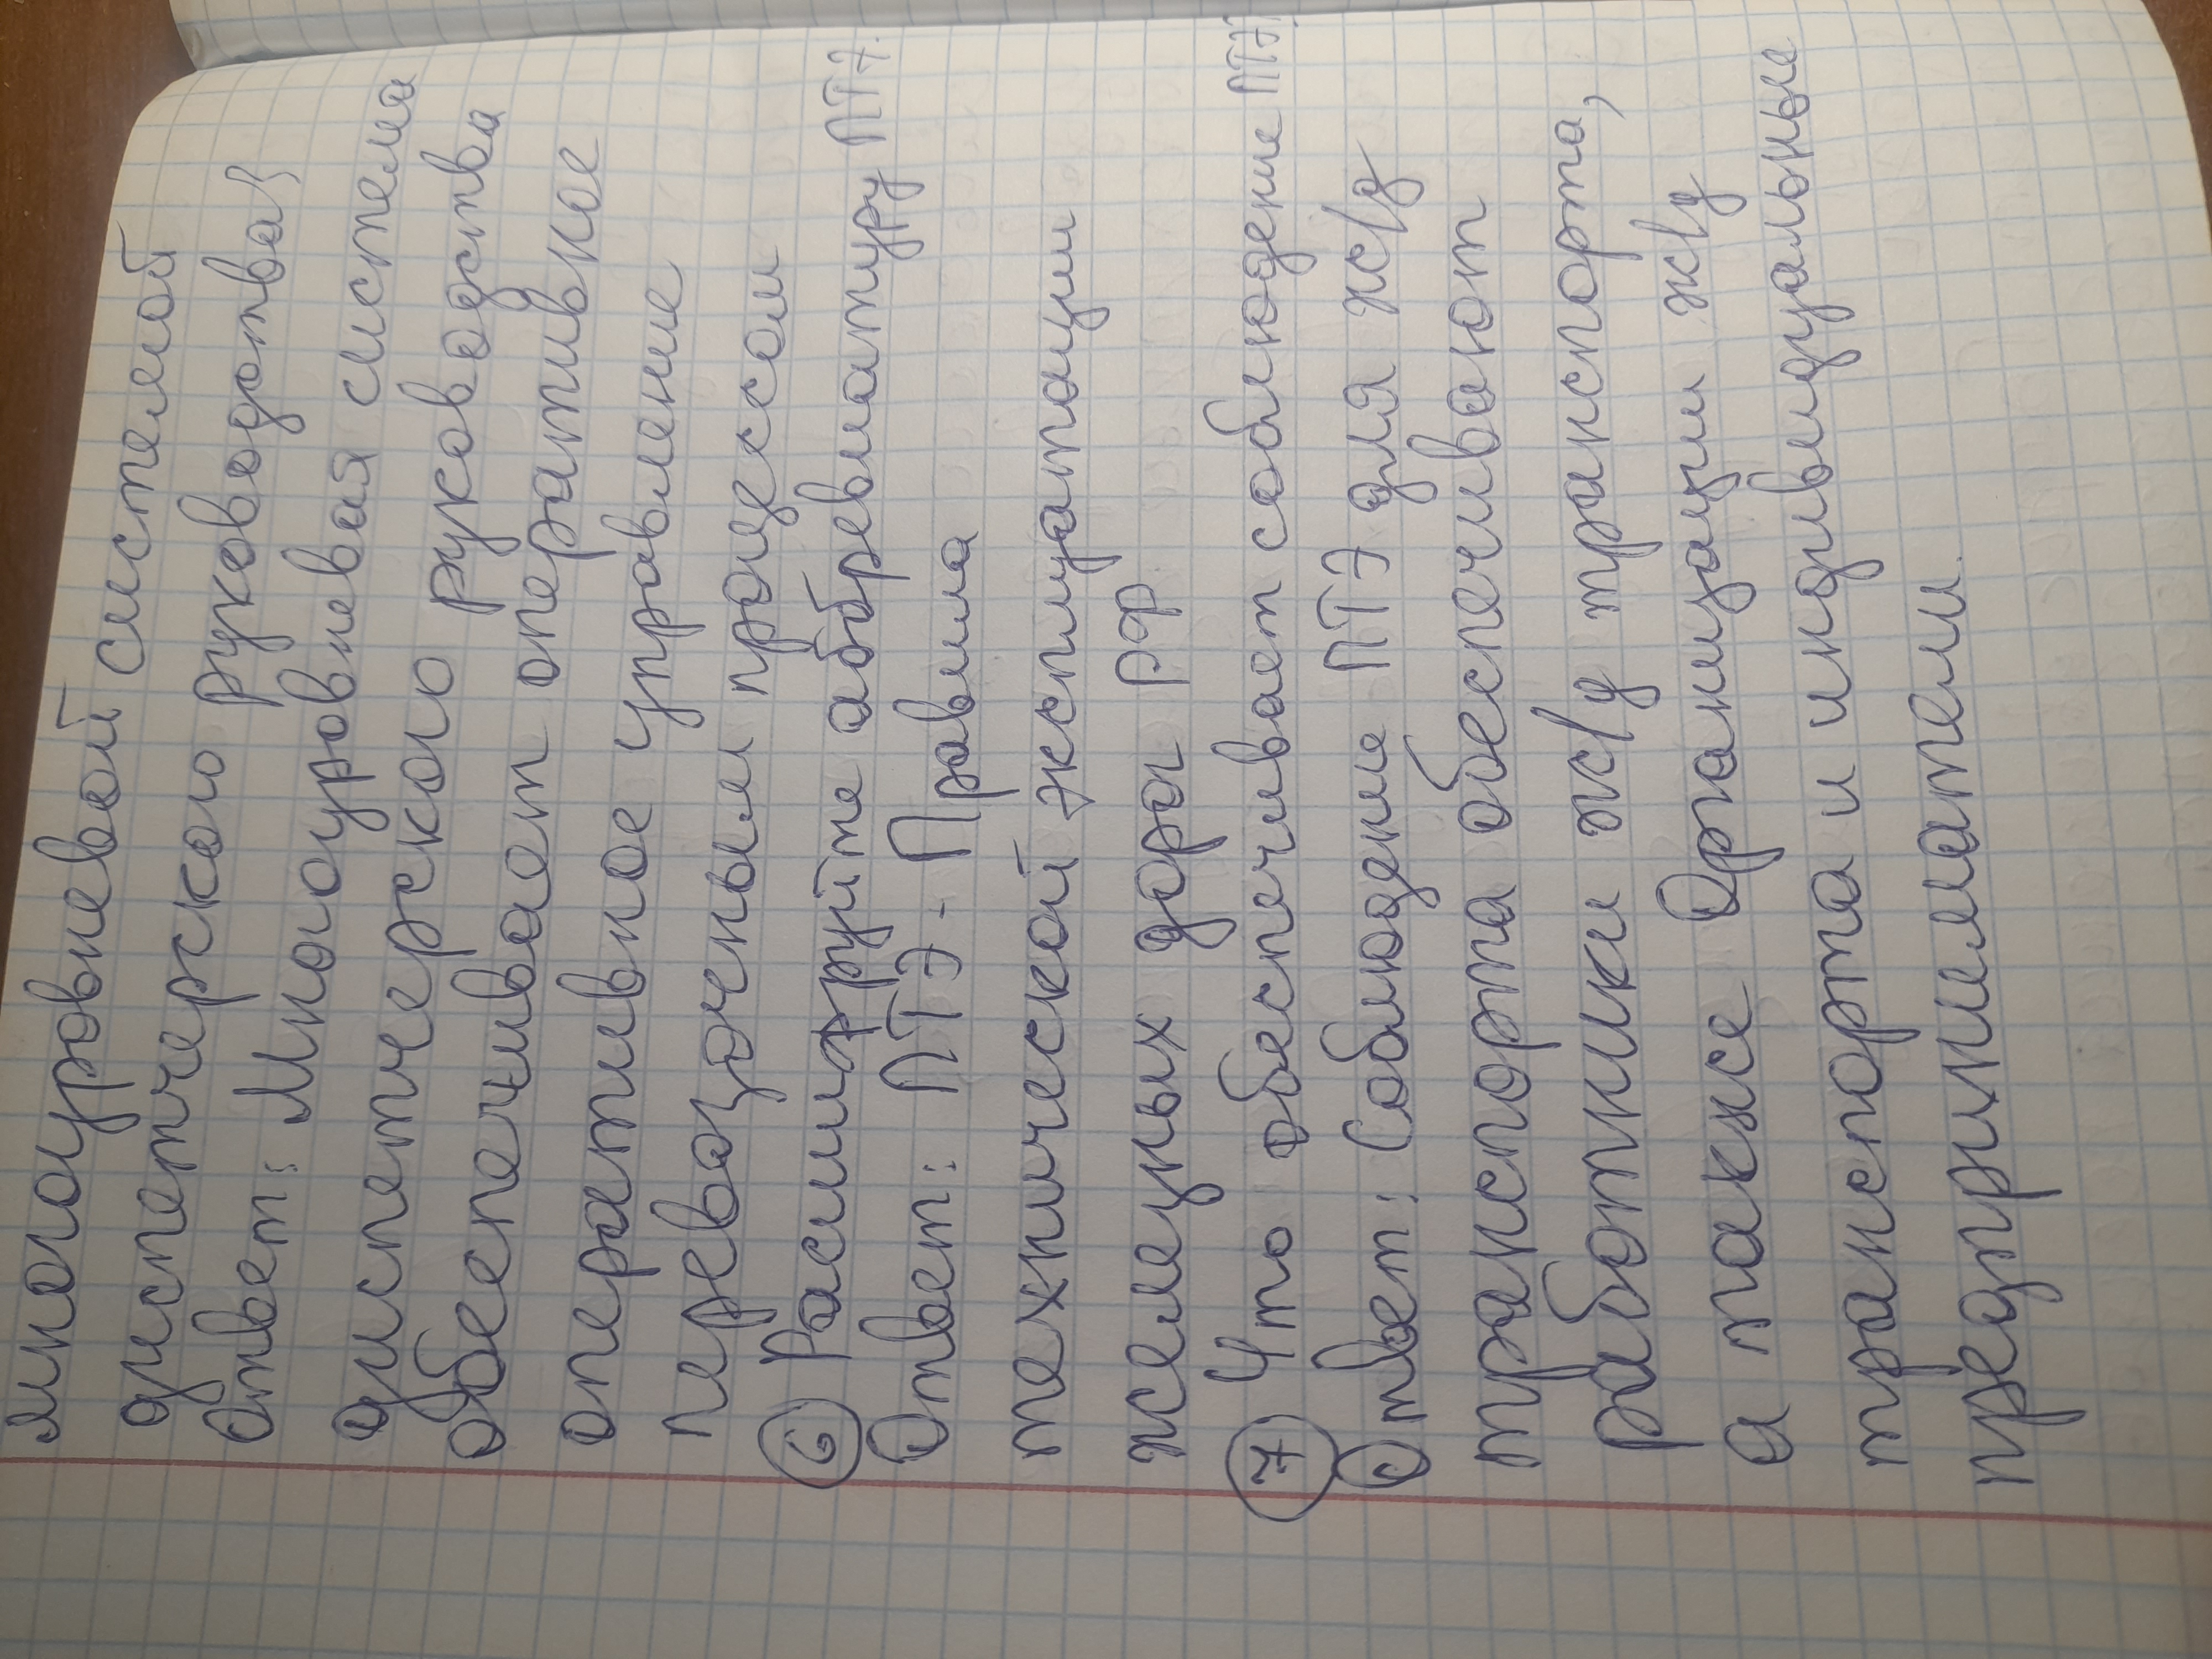 многоуровневой системой
диспетчерского руководства?
Ответ: Многоуровневая система
диспетчерского руководства
обеспечивает оперативное
оперативное управление
перевозочным процессом
6 Расшифруйте аббревиатуру ПТЭ.
Ответ: ПТЭ - Правила
технической эксплуатации
железных дорог РФ
7 Что обеспечивает соблюдение ПТЭ?
Ответ: Соблюдение ПТЭ для ж/д
транспорта обеспечивают
работники ж/д транспорта,
а также Организации ж/д
транспорта и индивидуальные
предприниматели.